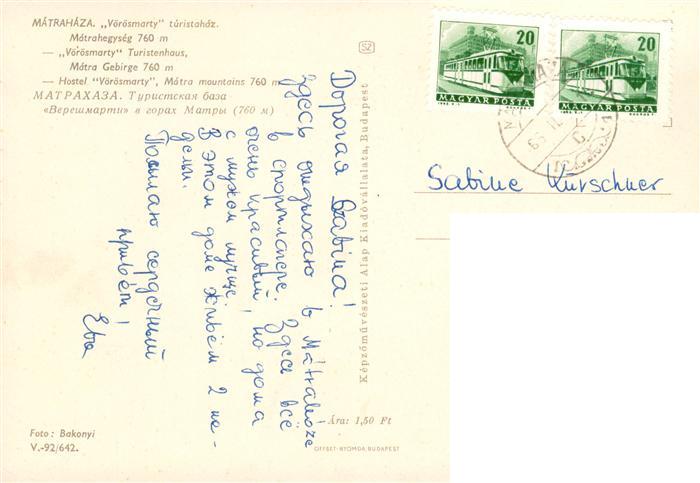 MÁTRAHÁZA. „Vörösmarty" túristaház.
Mátrahegység 760 m
— „Vörösmarty" Turistenhaus,
Mátra Gebirge 760 m
— Hostel "Vörösmarty", Mátra mountains 760 m
МАТРАХАЗА. Туристская база
«Верешмарти» в горах Матры (760 м)
Дорогая Сабина!
Здесь отдыхаю в Mátraháze
в спортлагере. Здесь всё
очень красивый, но дома
с мужом лучше.
В этом доме живём 2 не-
дели.
Посылаю сердечный
привет!
Ева
Foto: Bakonyi
V.-92/642.
SZ
Képzőművészeti Alap Kiadóvállalata, Budapest
Ára: 1,50 Ft
OFFSET-NYOMDA, BUDAPEST
20
MAGYAR POSTA
20
MAGYAR POSTA
Sabine Kürschner